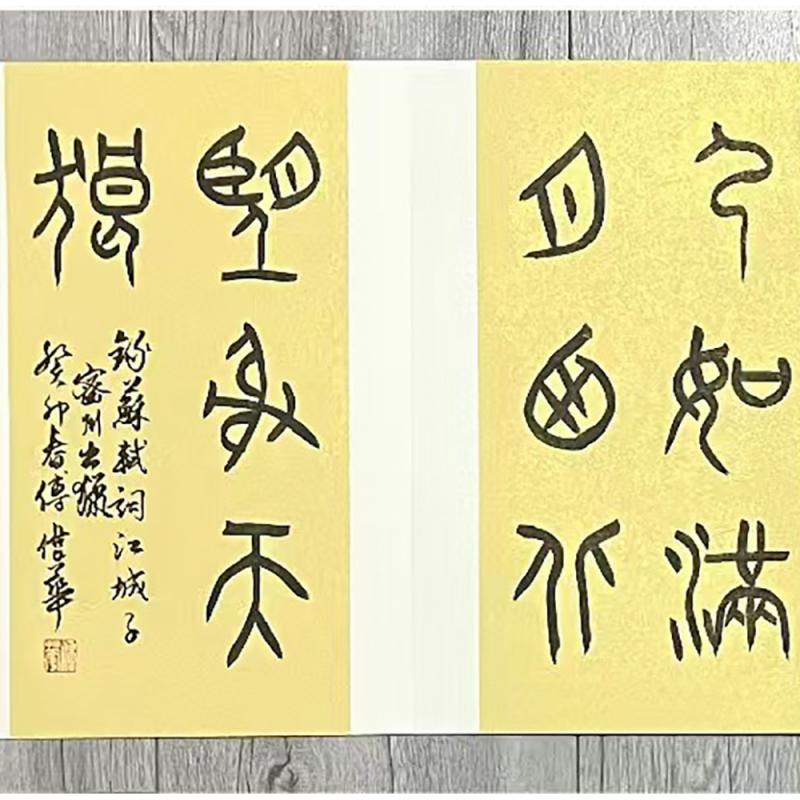 弓如滿
月西北
望射天
狼
錄蘇軾詞江城子
密州出獵
癸卯春傅偉華